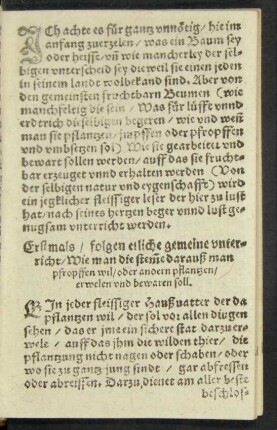 ICh achte es für gantz vnnötig / hie im
anfang zuerzelen / was ein Baum sey
oder heisse / vñ wie mancherley der sel-
bigen vnterscheid sey die weil sie einen jeden
in seinem landt wolbekand sind. Aber von
den gemeinsten fruchtbarn Beumen (wie
manichfeltig die sein / Was für lüfft vnnd
erdrich dieselbigen begeren / wie vnd weñ
man sie pflantzen / propffen oder pfropffen
vnd vmbsetzen sol) Wie sie gearbeitet vnd
bewart sollen werden / auff das sie frucht-
bar erzeuget vnnd erhalten werden (Von
der selbigen natur vnd eygenschafft) wird
ein jegklicher fleissiger leser der hier zu lust
hat / nach seines hertzen beger vnnd lust ge-
nugsam vnterricht werden.
Erstmals / folgen etliche gemeine vnter-
richt / Wie man die stem̃e darauß man
pfropffen wil / oder andern pflantzen /
erwelen vnd bewaren soll.
EIn jeder fleissiger Haußuatter der da
pflantzen wil / der sol vor allen dingen
sehen / das er jme ein sichere stat darzu er-
wele / auff das jhm die wilden thier / die
pflantzung nicht nagen oder schaben / oder
wo sie zu gantz jung sindt / gar abfressen
oder abreissen. Darzu dienet am aller beste
beschlos-